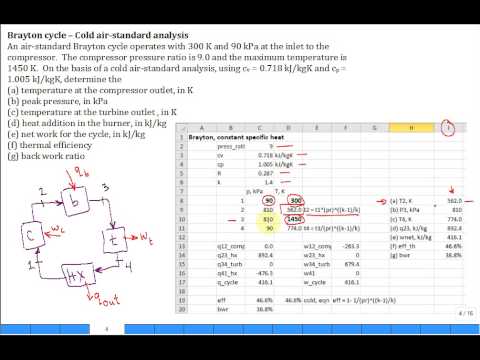 Brayton cycle – Cold air-standard analysis
An air-standard Brayton cycle operates with 300 K and 90 kPa at the inlet to the
compressor. The compressor pressure ratio is 9.0 and the maximum temperature is
1450 K. On the basis of a cold air-standard analysis, using cv = 0.718 kJ/kgK and cp =
1.005 kJ/kgK, determine the
(a) temperature at the compressor outlet, in K
(b) peak pressure, in kPa
(c) temperature at the turbine outlet, in K
(d) heat addition in the burner, in kJ/kg
(e) net work for the cycle, in kJ/kg
(f) thermal efficiency
(g) back work ratio
B C D E F G H I
1 Brayton, constant specific heat
2 press_ratio 9
3 cv 0.718 kJ/kgK
4 cp 1.005 kJ/kgK
5 R 0.287 kJ/kgK
6 k 1.4
7 p, kPa T, K
8 1 90 300 (a) T2, K 562.0
9 2 810 562.0 t2 = t1*(pr)^((k-1)/k) (b) P3, kPa 810
10 3 810 1450 (c) T4, K 774.0
11 4 90 774.0 t4 = t3/(pr)^((k-1)/k) (d) q23, kJ/kg 892.4
12 (e) wnet, kJ/kg 416.1
13 q12_comp 0.0 w12_comp -263.3 (f) eff_th 46.6%
14 q23_hx 892.4 w23_hx 0 (g) bwr 38.8%
15 q34_turb 0 w34_turb 679.4
16 q41_hx -476.3 w41 0
17 q_cycle 416.1 w_cycle 416.1
18
19 eff 46.6% 46.6% cold, eqn eff = 1- 1/(pr)^((k-1)/k)
20 bwr 38.8%
2 b 3
q̇b
c t
wc
wt
1 HX 4
qout
4
4 / 16